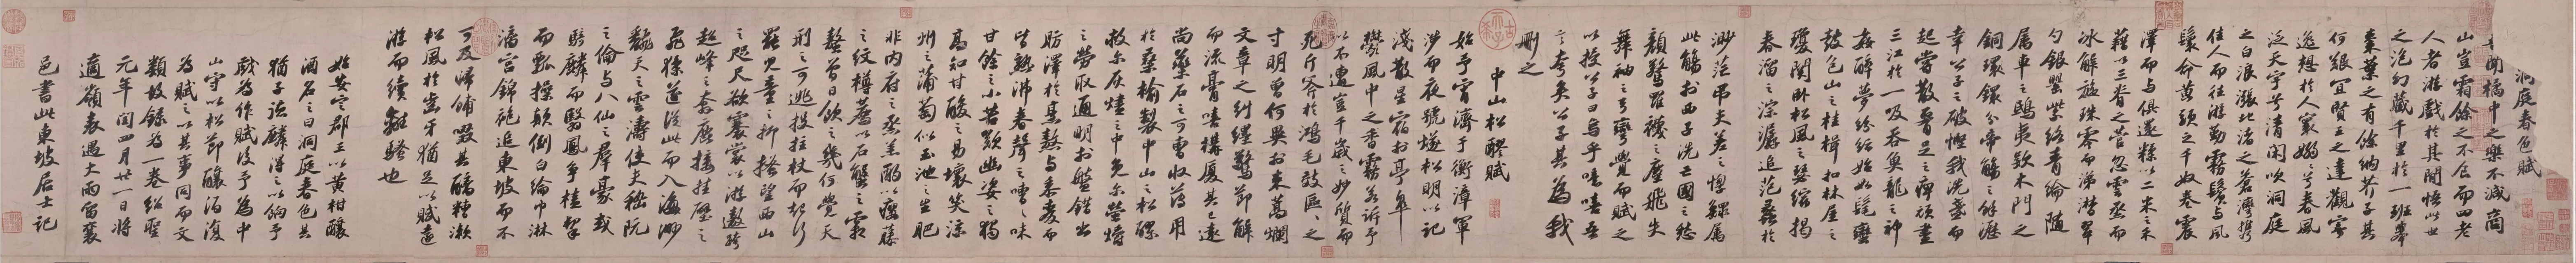 洞庭春色賦
吾聞橘中之樂不減商
山豈霜餘之不食而四老
人者游戲於其間悟此世
之泡幻藏千里於一班舉
棗葉之有餘納芥子其
何艱宜賢王之達觀寄
逸想於人寰嫋嫋兮春風
泛天宇兮清閑吹洞庭
之白浪漲北渚之蒼灣攜
佳人而往游勤霧鬢與風
鬟命黃頭之千奴卷震
澤而與俱還糅以二米之禾
藉以三脊之菅忽雲烝而
冰解旋珠零而涕潸翠
勺銀罌紫絡青倫隨
屬車之鴟夷款木門之
銅鐶分帝觴之餘瀝
幸公子之破慳我洗盞而
起嘗散腰足之痹頑盡
三江於一吸吞魚龍之神
姦醉夢紛紜始如髦蠻
鼓包山之桂楫扣林屋之
瓊關臥松風之瑟縮揭
春溜之淙潺追范蠡於
渺茫弔夫差之惸鰥屬
此觴於西子洗亡國之愁
顏驚羅襪之塵飛失
舞袖之弓彎覺而賦之
以授公子曰烏乎噫嘻吾
言夸矣公子其為我
刪之
中山松醪賦
始予宵濟于衡漳軍
涉而夜號燧松明以記
淺散星宿於亭皋
鬱風中之香霧若訴予
以不遭豈千歲之妙質而
死斤斧於鴻毛效區區之
寸明曾何異於束蒿爛
文章之糾纆驚節解
而流膏嘻構廈其已遠
尚藥石之可曹收薄用
於桑榆製中山之松醪
救爾灰燼之中免爾螢爝
之勞取通明於盤錯出
肪澤於烹熬與黍麥而
皆熟沸舂聲之嘈嘈味
甘餘之小苦歎幽姿之獨
高知甘酸之易壞笑涼
州之蒲萄似玉池之生肥
非內府之烝羔酌以癭藤
之紋樽薦以石蟹之霜
螯曾日飲之幾何覺天
刑之可逃投拄杖而起行
罷兒童之抑搔望西山
之咫尺欲褰裳以游遨跨
超峰之奔鹿接挂壁之
飛猱遂從此而入海渺
翻天之雲濤使夫嵇阮
之倫與八仙之群豪或
騎麟而翳鳳爭榼挈
而瓢操顛倒白綸巾淋
漓宮錦袍追東坡而不
可及歸餔歠其醨糟漱
松風於齒牙猶足以賦遠
游而續離騷也
始安定郡王以黃柑釀
酒名之曰洞庭春色其
猶子德麟得之以餉予
戲為作賦後予為中
山守以松節釀酒復
為賦之以其事同而文
類故錄為一卷紹聖
元年閏四月廿一日將
適嶺表遇大雨留襄
邑書此東坡居士記